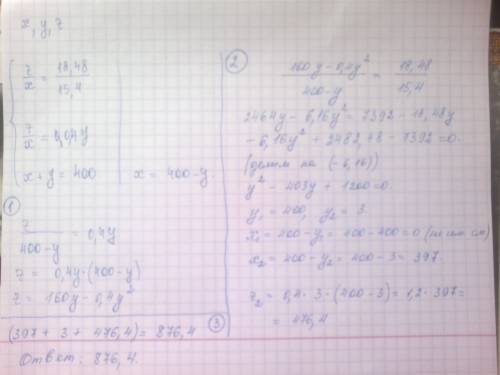 x, y, z
z/x = 18,48/15,4
z/x = 0,04y
x + y = 400 | x = 400 - y
①
z/(400-y) = 0,4y
z = 0,4y · (400-y)
z = 160y - 0,4y²
②
(160y - 0,4y²)/(400-y) = 18,48/15,4
2464y - 6,16y² = 7392 - 18,48y
-6,16y² + 2482,48 - 7392 = 0.
(делим на (-6,16))
y² - 403y + 1200 = 0.
y₁ = 400, y₂ = 3.
x₁ = 400 - y₁ = 400 - 400 = 0 (не им. см)
x₂ = 400 - y₂ = 400 - 3 = 397.
z₂ = 0,4 · 3 · (400 - 3) = 1,2 · 397 =
= 476,4
③
(397 + 3 + 476,4) = 876,4
Ответ: 876,4.